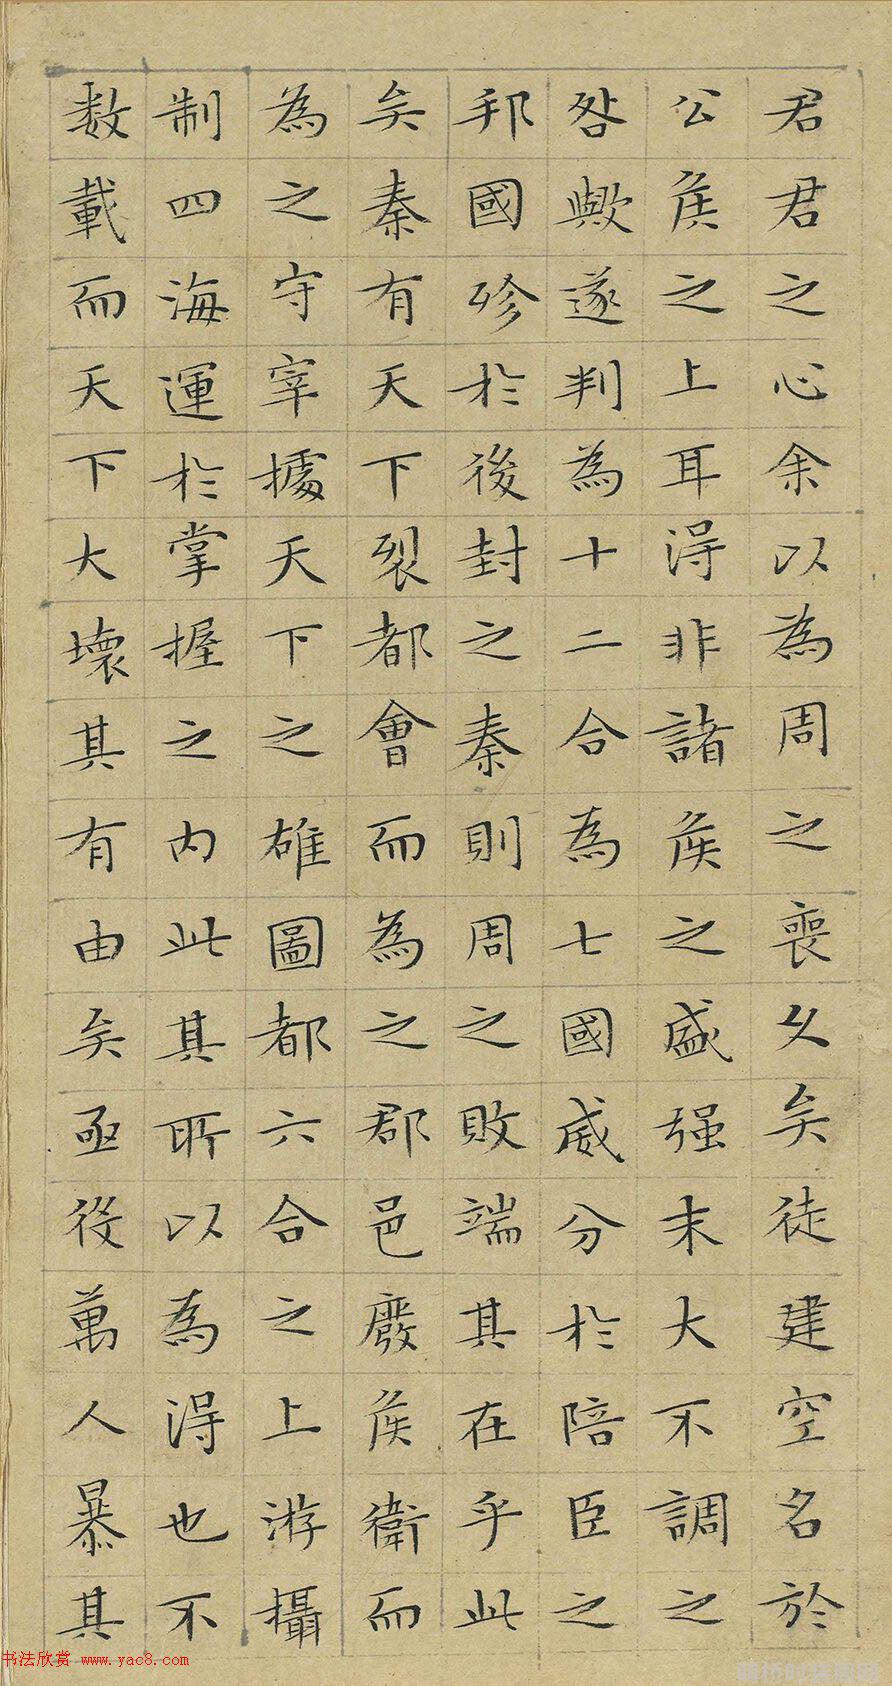 君君之心余以為周之喪久矣徒建空名於
公侯之上耳得非諸侯之盛强末大不調之
咎歟遂判為十二合為七國威分於陪臣之
邦國殄於後封之秦則周之敗端其在乎此
矣秦有天下裂都會而為之郡邑廢侯衛而
為之守宰據天下之雄圖都六合之上游攝
制四海運於掌握之内此其所以為得也不
数載而天下大壞其有由矣亟役萬人暴其
书法欣赏 www.yac8.com